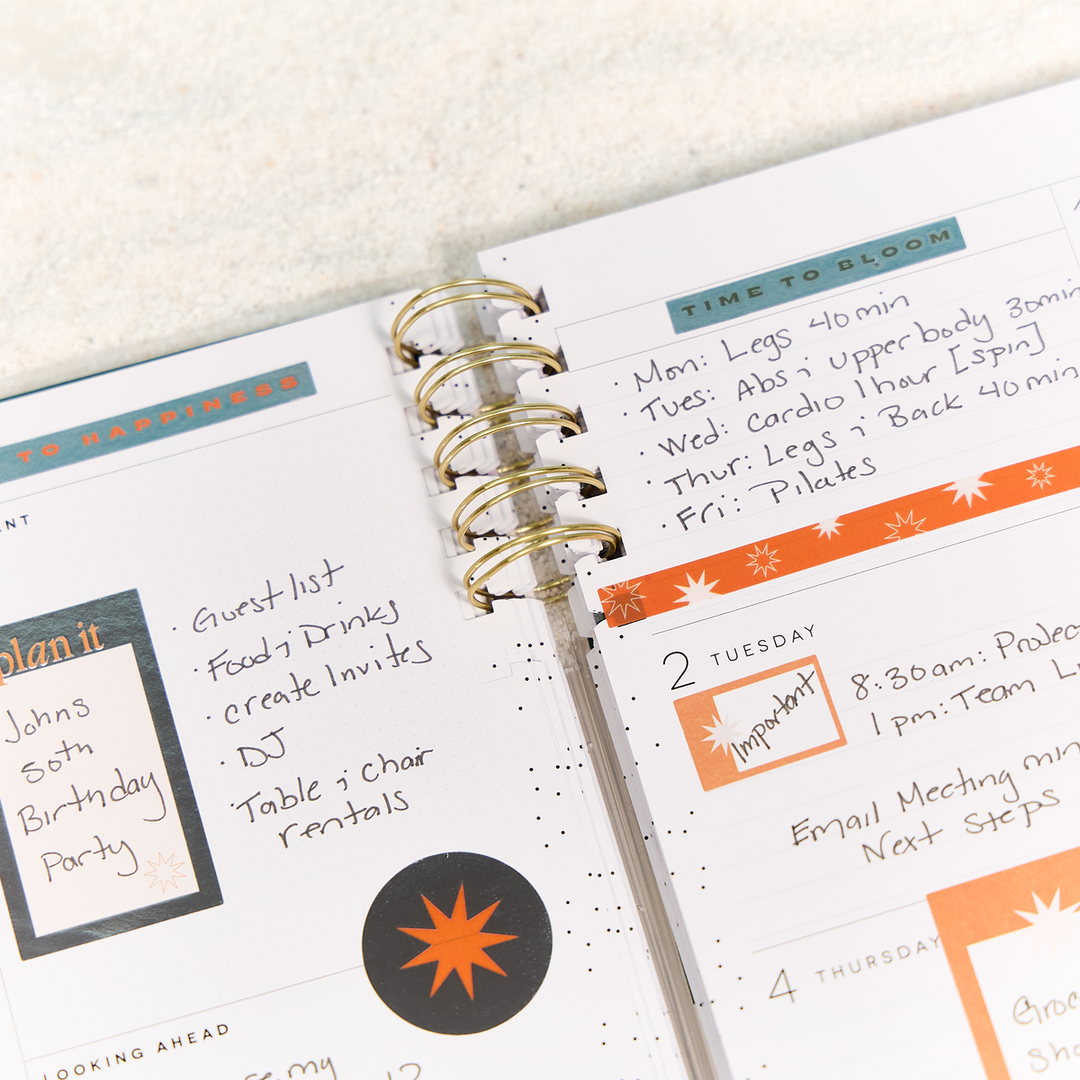 TO HAPPINESS
plan it
Johns
50th
Birthday
Party
• Guest list
• Food & Drinks
• create Invites
• DJ
• Table & chair
rentals
LOOKING AHEAD
TIME TO BLOOM
• Mon: Legs 40 min
• Tues: Abs & upper body 30min
• Wed: Cardio 1 hour [spin]
• Thur: Legs & Back 40 min
• Fri: Pilates
2 TUESDAY
Important
8:30am:
1 pm: Team
Email Meeting
Next Steps
4 THURSDAY